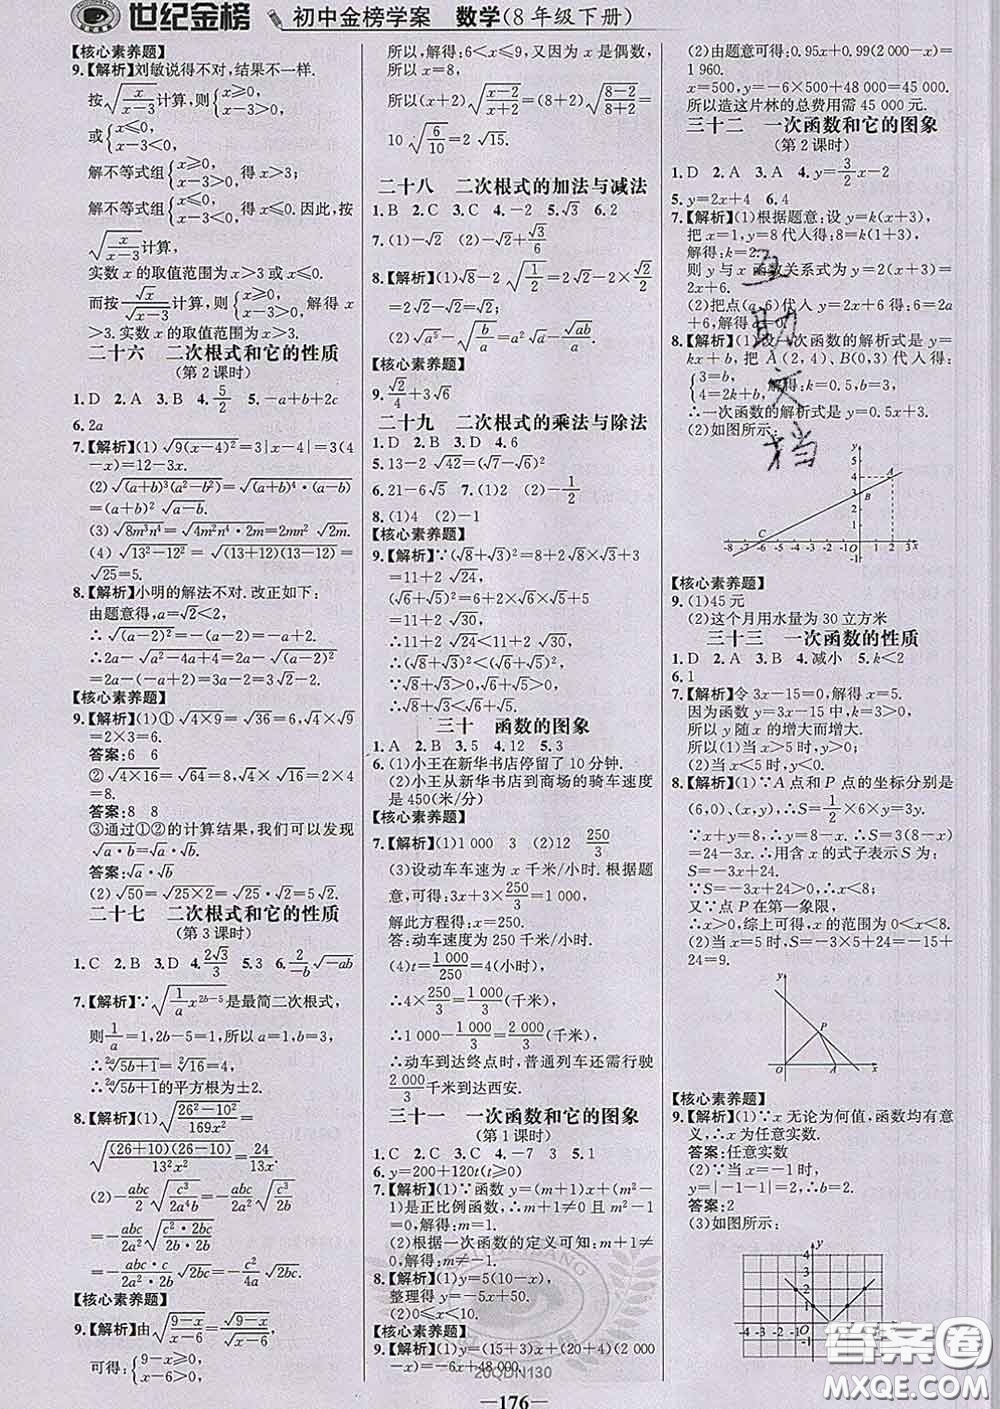 世纪金榜 初中金榜学案 数学(8年级下册)
【核心素养题】
9.【解析】刘敏说得不对,结果不一样.
按√(x/(x-3))计算,则{x≥0, x-3>0,
或{x≤0, x-3<0.
解不等式组{x≥0, x-3>0,得 x>3;
解不等式组{x≤0, x-3<0,得 x≤0.因此,按
√(x/(x-3))计算,
实数 x 的取值范围为 x>3 或 x≤0.
而按√x/√(x-3)计算,则{x≥0, x-3>0,解得 x
>3.实数 x 的取值范围为 x>3.
二十六 二次根式和它的性质
(第2课时)
1.D 2.A 3.B 4.5/2 5.-a+b+2c
6.2a
7.【解析】(1)√(9(x-4)²)=3|x-4|=3(4
-x)=12-3x.
(2)√((a+b)³(a²-b²))=√((a+b)⁴·(a-b))
=(a+b)²√(a-b).
(3)√(8m³n⁴)=√(4m²n⁴·2m)=2mn²√2m.
(4)√(13²-12²)=√((13+12)(13-12))=
√25=5.
8.【解析】小明的解法不对.改正如下:
由题意得,a=√2<2,
∴√((a-2)²)=-(a-2)=-a+2.
∴2a-√(a²-4a+4)=2a-√((a-2)²)=
2a-(-a+2)=3a-2=3√2-2.
【核心素养题】
9.【解析】(1)①√(4×9)=√36=6,√4×√9
=2×3=6.
答案:6 6
②√(4×16)=√64=8,√4×√16=2×4
=8.
答案:8 8
③通过①②的计算结果,我们可以发现
√(a·b)=√a·√b.
答案:√a·√b
(2)√50=√(25×2)=√25·√2=5√2.
二十七 二次根式和它的性质
(第3课时)
1.C 2.B 3.D 4.2√3/3 5.3 6.2/(-b)√(-ab)
7.【解析】∵√(1/a x^(2b-5))是最简二次根式,
则1/a=1,2b-5=1,所以 a=1,b=3,
∴²ᵃ√(5b+1)=²√16=4,
∴²ᵃ√(5b+1)的平方根为±2.
8.【解析】(1)√((26²-10²)/(169x²))=
√((26+10)(26-10))/√(13²x²)=24/(13x).
(2)-abc/2√(c³/(2a⁴b))
=-abc/(2a²)√(c²·2bc/...)
=-abc·c/(2a²·2b)√2bc=-c²/(4a)√2bc.
【核心素养题】
9.【解析】由√((9-x)/(x-6))=√(9-x)/√(x-6),
可得:{9-x≥0, x-6>0,
所以,解得:6<x≤9,又因为 x 是偶数,
所以 x=8,
所以原式=(x+2)√((x-2)/(x+2))=(8+2)√((8-2)/(8+2))=
10√(6/10)=2√15.
二十八 二次根式的加法与减法
1.B 2.C 3.C 4.-2 5.√3 6.2
7.(1)-√2 (2)-√2+√3/6
8.【解析】(1)√8-2√(1/2)=2√2-2×√2/2
=2√2-√2=√2.
(2)√(a⁵)-√(b/a)=a²√a-√ab/a.
【核心素养题】
9.√2/4+3√6
二十九 二次根式的乘法与除法
1.D 2.B 3.D 4.6
5.13-2√42=(√7-√6)²
6.21-6√5 7.(1)2 (2)-1/2
8.(1)4 (2)-1
【核心素养题】
9.【解析】∵(√8+√3)²=8+2√8×√3+3
=11+2√24,
(√6+√5)²=6+2×√6×√5+5
=11+2√30,
11+2√24<11+2√30,
∴(√8+√3)²<(√6+√5)².
∵√8+√3>0,√6+√5>0,
∴√8+√3<√6+√5.
三十 函数的图象
1.A 2.B 3.5 4.12 5.3
6.(1)小王在新华书店停留了 10 分钟.
(2)小王从新华书店到商场的骑车速度
是 450(米/分)
【核心素养题】
7.【解析】(1)1 000 3 (2)12 250/3
(3)设动车车速为 x 千米/小时.根据题
意,可得:3x+3×250/3=1 000,
解此方程得:x=250.
答:动车速度为 250 千米/小时.
(4)t=1 000/250=4(小时),
∴4×250/3=1 000/3(千米),
∴1 000-1 000/3=2 000/3(千米),
∴动车到达终点时,普通列车还需行驶
2 000/3千米到达西安.
三十一 一次函数和它的图象
(第1课时)
1.C 2.C 3.C 4.-7 3 5.1
6.y=200+120t(t≥0)
7.【解析】(1)∵函数 y=(m+1)x+(m²-
1)是正比例函数,∴m+1≠0 且 m²-1
=0.解得:m=1.
(2)根据一次函数的定义可知:m+1≠
0,解得:m≠-1.
8.【解析】(1)y=5(10-x),
整理得 y=-5x+50.
(2)0≤x≤10.
【核心素养题】
9.【解析】(1)y=(15+3)x+(20+4)(2 000
-x)=-6x+48 000.
(2)由题意可得:0.95x+0.99(2 000-x)=
1 960.
x=500,y=-6×500+48 000=45 000.
所以造这片林的总费用需 45 000 元.
三十二 一次函数和它的图象
(第2课时)
1.D 2.A 3.A 4.y=3/2x-2
5.y=2x+4 6.4
7.【解析】(1)根据题意:设 y=k(x+3),
把 x=1,y=8 代入得:8=k(1+3),
解得:k=2.
则 y 与 x 函数关系式为 y=2(x+3)=
2x+6.
(2)把点(a,6)代入 y=2x+6 得:6=2a
+6,解得 a=0.
8.【解析】(1)设一次函数的解析式是 y=
kx+b,把 A(2,4)、B(0,3)代入得:
{3=b, 4=2k+b,解得:k=0.5,b=3,
∴一次函数的解析式是 y=0.5x+3.
(2)如图所示:
互助文档
y 5 4 3 2 1 A B C
-8 -7 -6 -5 -4 -3 -2 -1 O 1 2 3 x
-1
【核心素养题】
9.(1)45 元
(2)这个月用水量为 30 立方米
三十三 一次函数的性质
1.D 2.A 3.B 4.减小 5.k<2
6.1
7.【解析】令 3x-15=0,解得 x=5.
因为函数 y=3x-15 中的 k=3>0,
所以 y 随 x 的增大而增大.
所以(1)当 x>5 时,y>0;
(2)当 x≤5 时,y≤0.
8.【解析】(1)∵A 点和 P 点的坐标分别是
(6,0),(x,y),∴S=1/2×6×y=3y.
∵x+y=8,∴y=8-x.∴S=3(8-x)
=24-3x.∴用含 x 的式子表示 S 为:
S=-3x+24.
∵S=-3x+24>0,∴x<8.
又∵点 P 在第一象限,
∴x>0,综上可得,x 的范围为 0<x<8.
(2)当 x=5 时,S=-3×5+24=-15+
24=9.
y P O A x
【核心素养题】
9.【解析】(1)∵x 无论为何值,函数均有意
义,∴x 为任意实数.
答案:任意实数
(2)∵当 x=-1 时,
y=|-1-1|=2.
答案:2
(3)如图所示:
y 4 3 2 1
-4 -3 -2 -1 O
20QDN130
—176—
答案圈
MXQE.COM